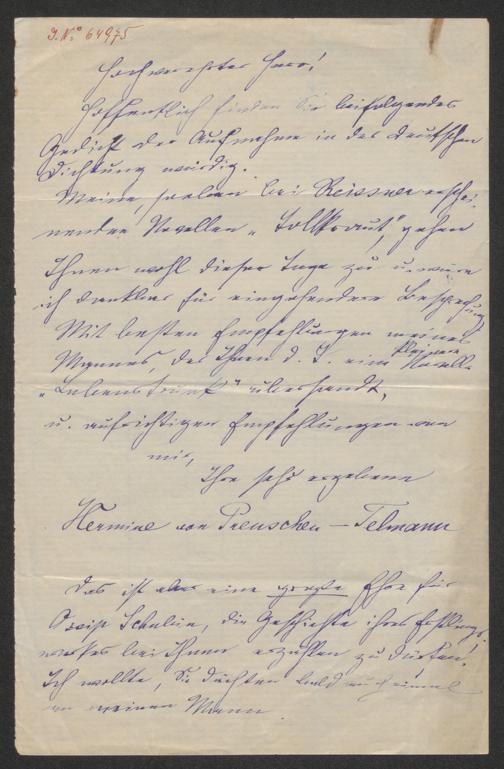 I.N.º 64975
Hochverehrter Herr!
Hoffentlich finden Sie beifolgendes
Gedicht der Aufnahme in der Deutschen
Dichtung würdig.
Meine soeben bei Reissner erschei-
nenden Novellen „Tollkraut“, gehen
Ihnen wohl dieser Tage zu u. wäre
ich dankbar für eingehendere Besprechung
Mit besten Empfehlungen meines
Mannes, der Ihnen d. T. eine kleinere Novelle
„Lebenstrunk“ übersandt,
u. aufrichtigen Empfehlungen von
mir,
Ihre sehr ergebene
Hermine von Preuschen-Telmann
Das ist aber eine große Ehre für
Ossip Schubin, die Geschichte ihres Erstlings-
werkes bei Ihnen erzählen zu dürfen!
Ich wollte, Sie dächten bald auch einmal
an meinen Mann.